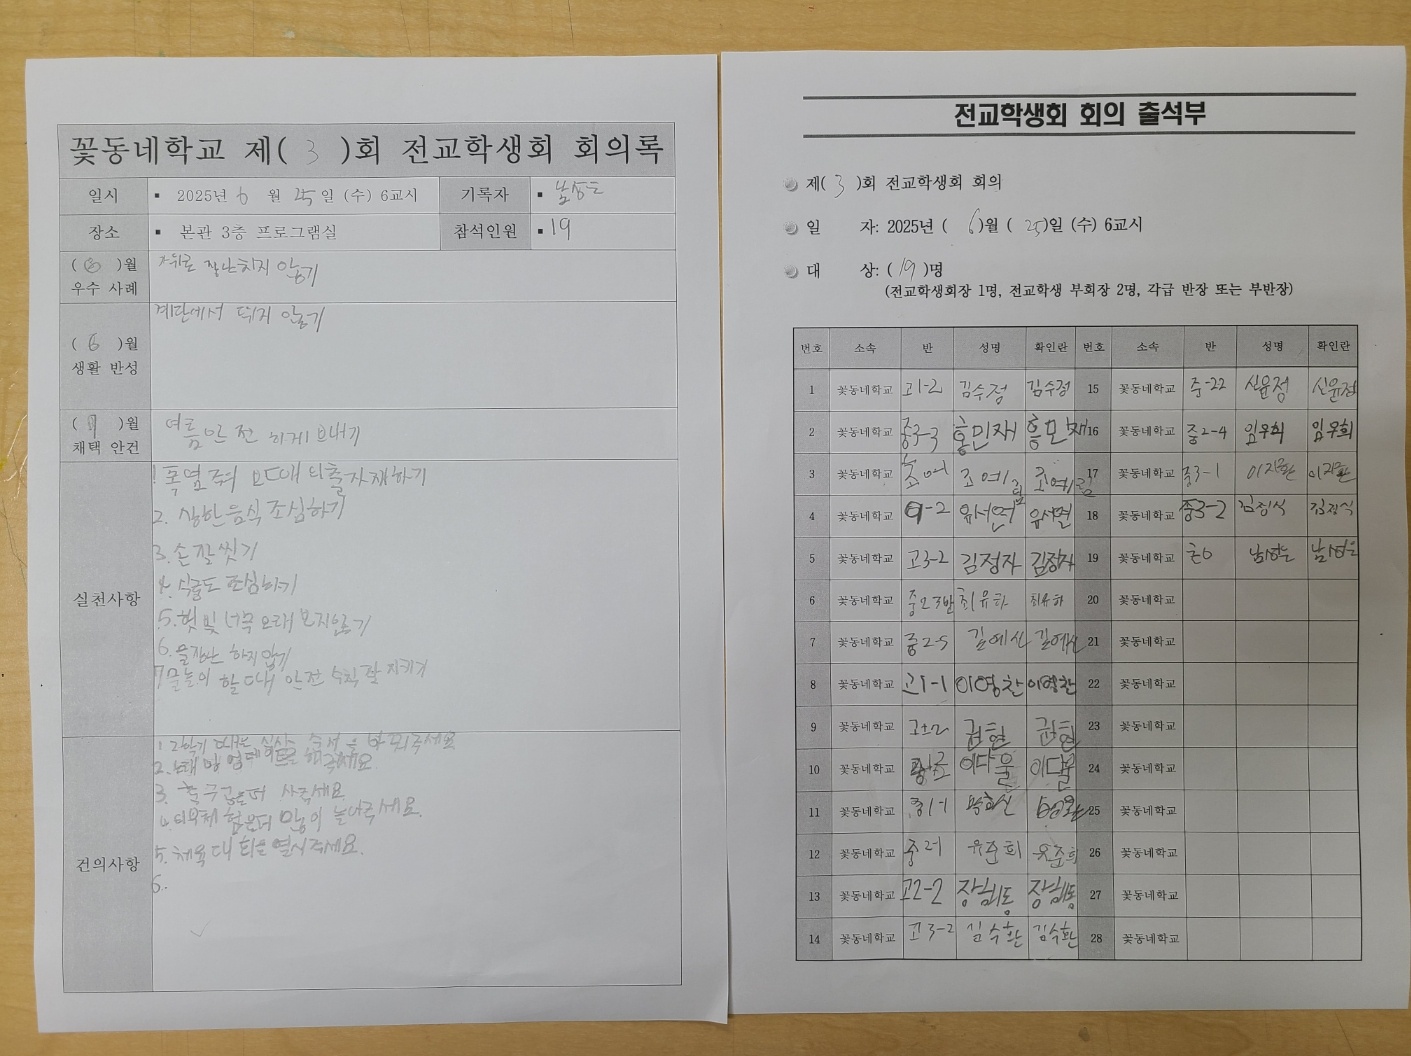 꽃동네학교 제( 3 )회 전교학생회 회의록
일시 ▪ 2025년 6 월 25일 (수) 6교시 기록자 ▪ 남성은
장소 ▪ 본관 3층 프로그램실 참석인원 ▪ 19
( 6 )월 우수 사례 가위로 장난치지 않기
( 6 )월 생활 반성 계단에서 뛰지 않기
( 7 )월 채택 안건 여름 안전 하게 보내기
실천사항
1 폭염 외출자재하기
2. 상한음식 조심하기
3. 손 잘 씻기
4. 식중독 조심하기
5. 햇빛 너무 오래 보지않기
6. 물장난 하지 않기
7 물놀이 할 때 안전 수칙 잘 지키기
건의사항
1 2학기 때는 순서을 바꿔주세요
2. 해주세요
3. 축구공 사주세요
4. 많이 놀아주세요.
5. 체육대회을 열어주세요.
6.
전교학생회 회의 출석부
제( 3 )회 전교학생회 회의
일 자: 2025년 ( 6)월 ( 25)일 (수) 6교시
대 상: ( 19 )명
(전교학생회장 1명, 전교학생 부회장 2명, 각급 반장 또는 부반장)
번호 소속 반 성명 확인란 번호 소속 반 성명 확인란
1 꽃동네학교 고1-2 김수정 김수정 15 꽃동네학교 신윤정 신윤정
2 꽃동네학교 중3-3 홍민재 홍민재 16 꽃동네학교 중2-4 임우희 임우희
3 꽃동네학교 조예림 조예림 17 꽃동네학교 중3-1 이지환 이지환
4 꽃동네학교 유서연 유서연 18 꽃동네학교 중3-2 김정식 김정식
5 꽃동네학교 고3-2 김정자 김정자 19 꽃동네학교 초6 남성은 남성은
6 꽃동네학교 중2 3반 최유하 최유하 20 꽃동네학교
7 꽃동네학교 중2-5 길예산 길예산 21 꽃동네학교
8 꽃동네학교 고1-1 이영찬 이영찬 22 꽃동네학교
9 꽃동네학교 권현 권현 23 꽃동네학교
10 꽃동네학교 이다울 이다울 24 꽃동네학교
11 꽃동네학교 중1-1 25 꽃동네학교
12 꽃동네학교 중2-1 유준희 유준희 26 꽃동네학교
13 꽃동네학교 고2-2 장희동 장희동 27 꽃동네학교
14 꽃동네학교 고3-2 김수환 김수환 28 꽃동네학교